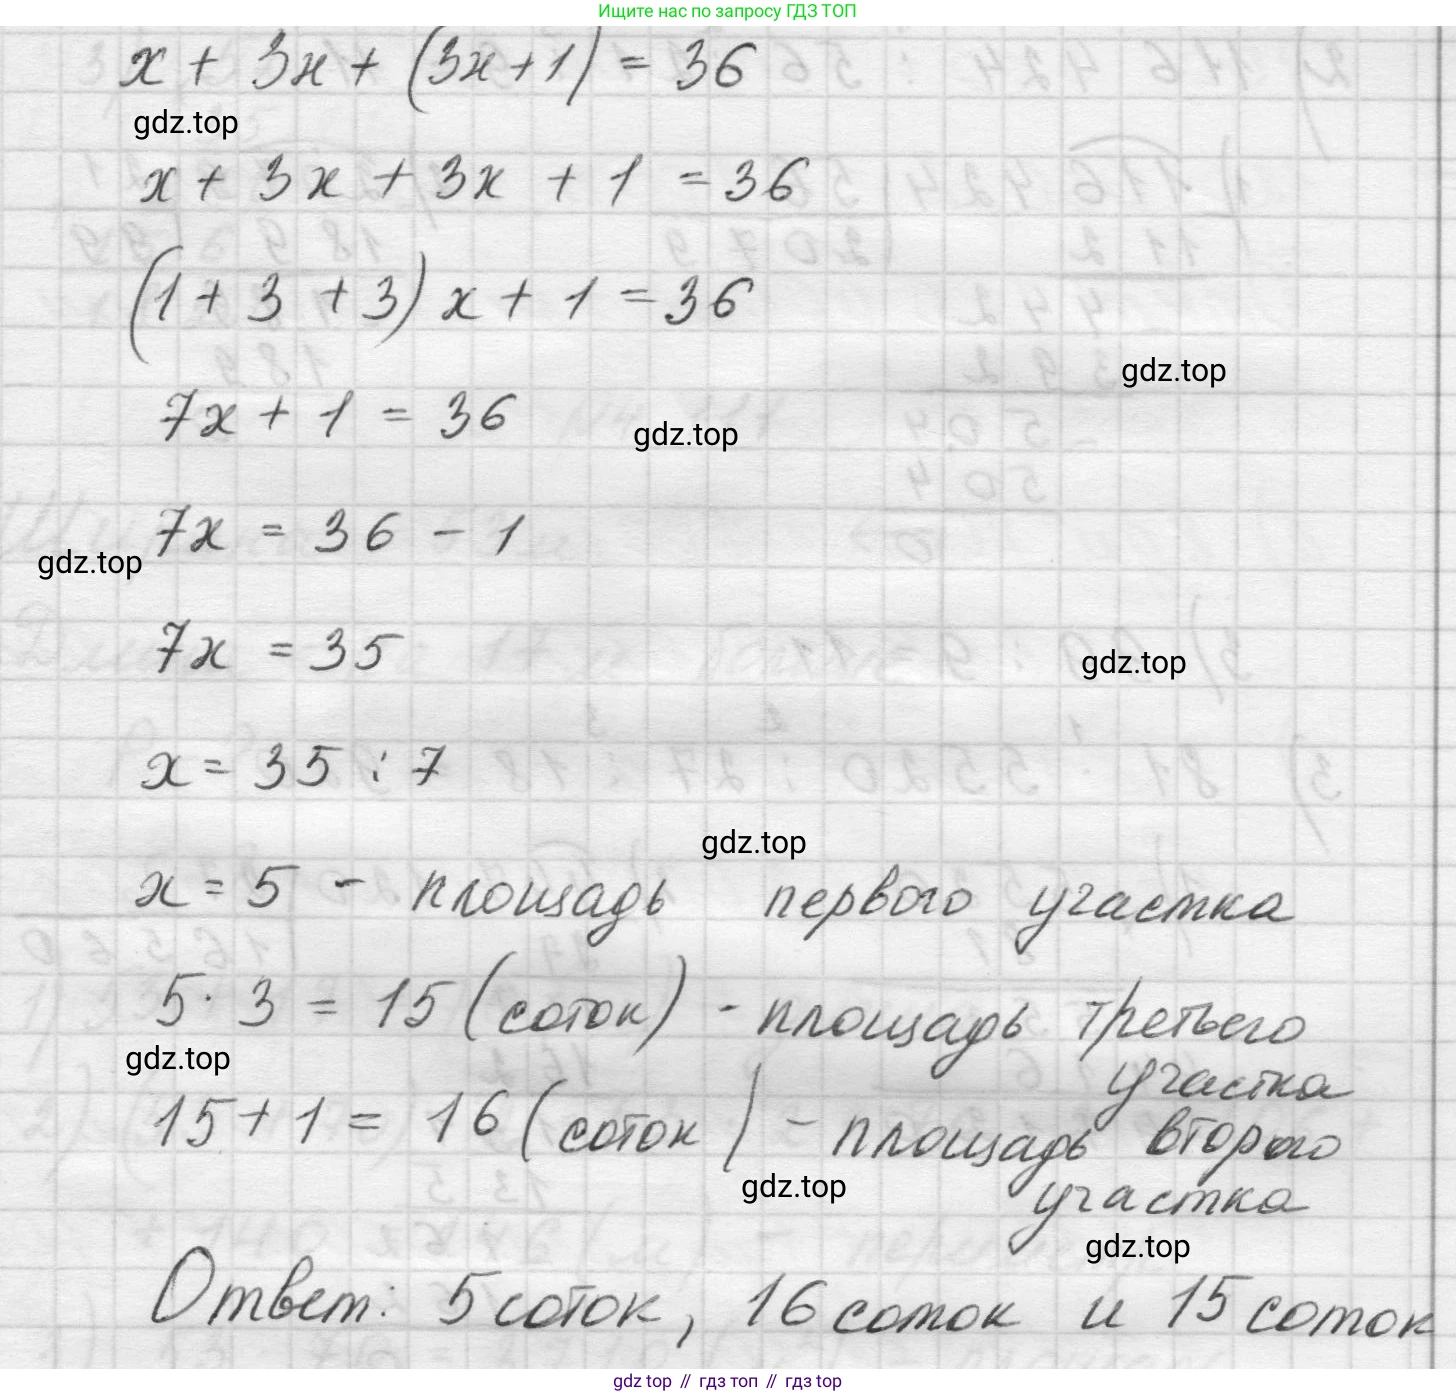 Ищите нас по запросу ГДЗ ТОП
x + 3x + (3x+1) = 36
gdz.top
x + 3x + 3x + 1 = 36
(1 + 3 + 3) x + 1 = 36
gdz.top
7x + 1 = 36
gdz.top
7x = 36 - 1
gdz.top
7x = 35
gdz.top
x = 35 : 7
gdz.top
x = 5 - площадь первого участка
5 · 3 = 15 (соток) - площадь третьего
участка
gdz.top
15 + 1 = 16 (соток) - площадь второго
gdz.top
участка
gdz.top
Ответ: 5 соток, 16 соток и 15 соток
gdz top // гдз топ // гдз top